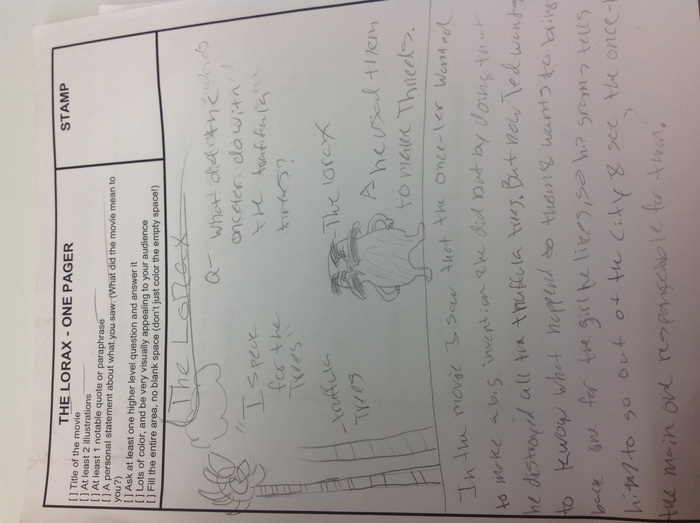 THE LORAX - ONE PAGER
STAMP
[ ] Title of the movie
[ ] At least 2 illustrations
[ ] At least 1 notable quote or paraphrase
[ ] A personal statement about what you saw: (What did the movie mean to
you?)
[ ] Ask at least one higher level question and answer it
[ ] Lots of color, and be very visually appealing to your audience
[ ] Fill the entire area, no blank space (don't just color the empty space!)
The Lorax
"I speck
for the
Trees"
Q- what did the
onceler do with
the truffula
trees?
trufula
Trees
The lorax
A he used them
to make Thneeds.
In the movie I saw that the once-ler wanted
to make a big invention & he did but by doing that
he distroyed all the truffula trees. But now Ted wants
to know what happend to them & wants to bring
back one for the girl he likes, so his grams tells
him to go out of the city & see the once-
the main one responsable for them.